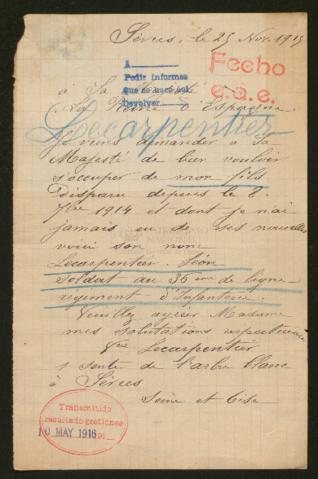 Sèvres, le 25 Nov. 1915
Fecho
e.a.e.
à Sa Majesté
A
Pedir informes
Que se hace qué.
Devolver
La Reine d'Espagne
Lecarpentier
Je viens demander à Sa
Majesté de bien vouloir
s'occuper de mon fils
Disparu depuis le 8
7bre 1914 et dont je n'ai
jamais eu de ses nouvelles
voici son nom
Lecarpentier Léon
Soldat au 36 ème de ligne
regiment d'Infanterie.
Veuillez agréer Madame
mes salutations respectueuses
Lecarpentier
1 sente de l'arbre blanc
à Sèvres
Seine et Oise
Transmitido
resultado gestiones
10 MAY 1916